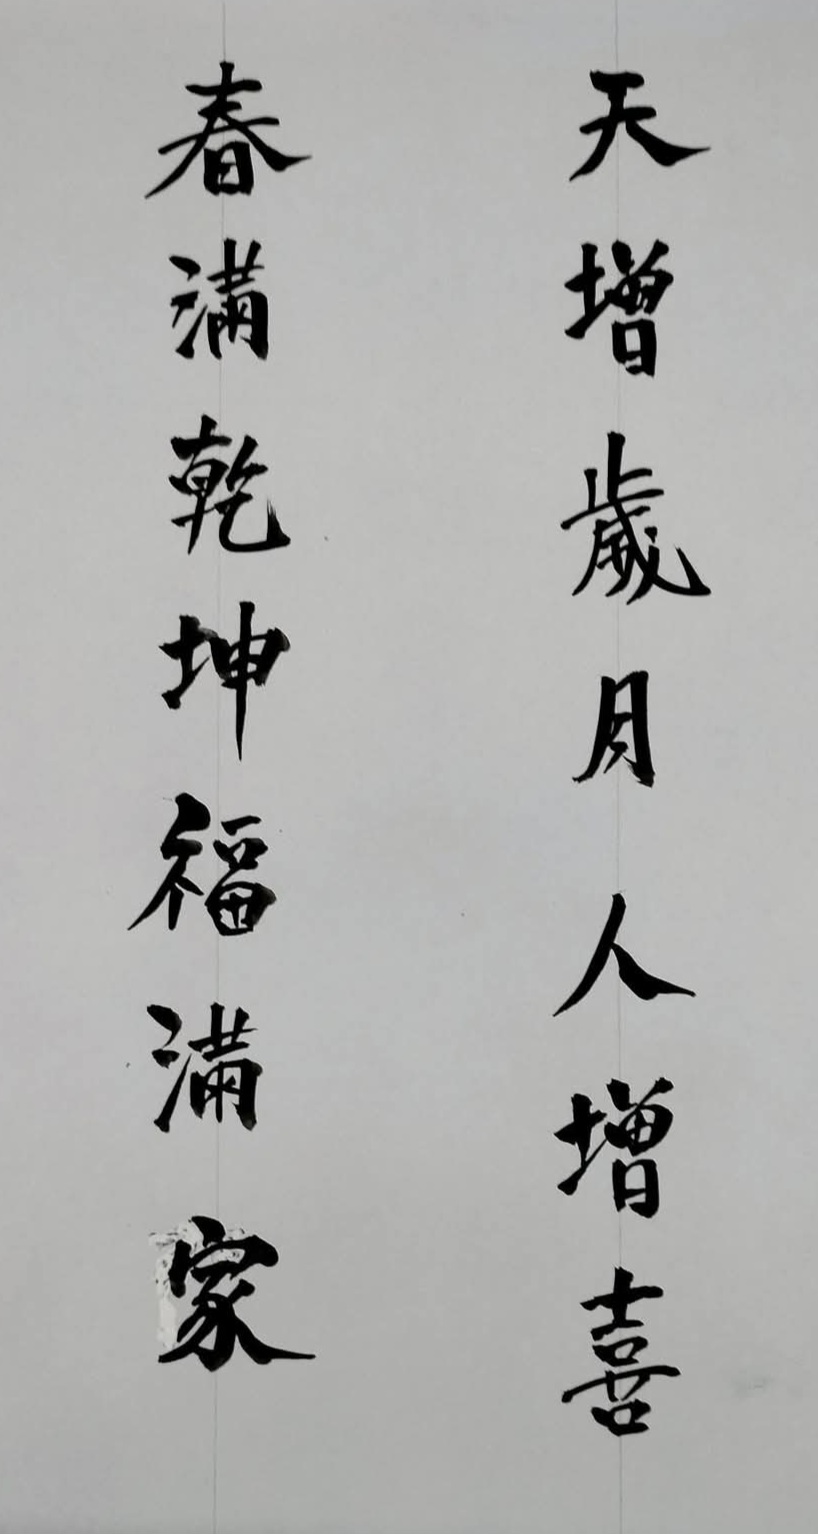 天增歲月人增喜
春滿乾坤福滿家